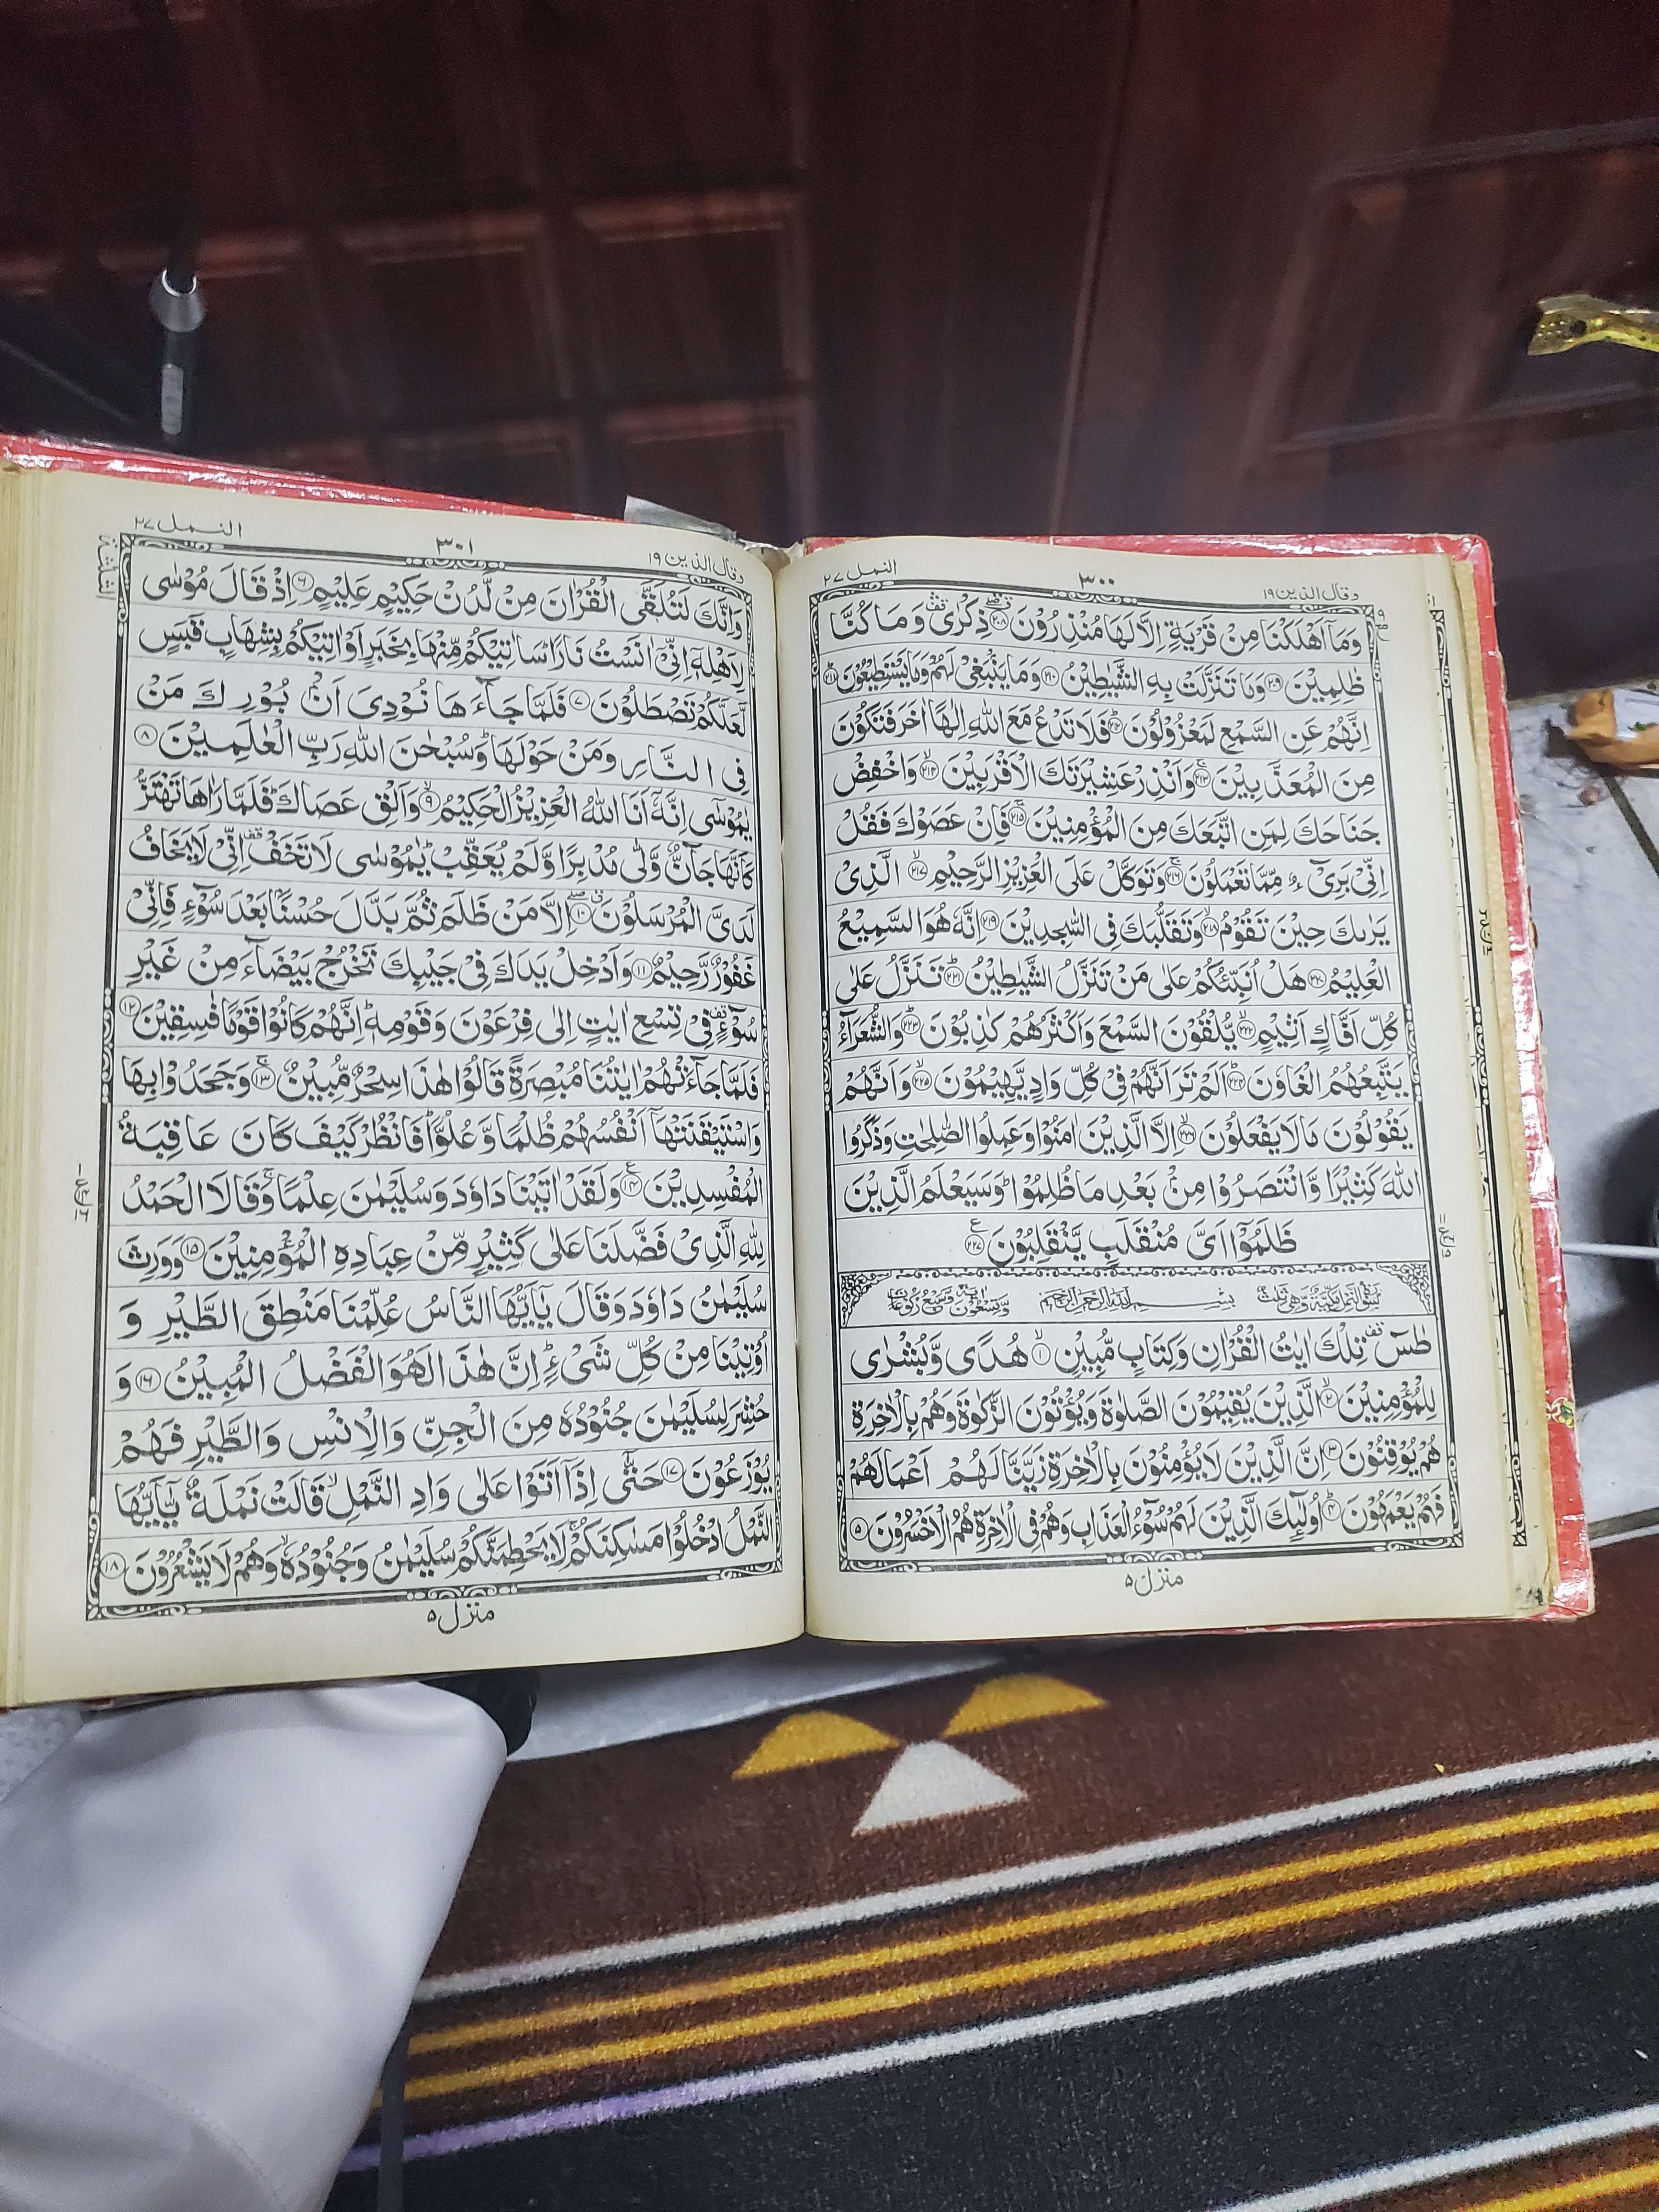 وقال الذين ١٩
٣٠٠
النمل ٢٧
وَمَآ اَهۡلَكۡنَا مِنۡ قَرۡيَةٍ اِلَّا لَهَا مُنۡذِرُوۡنَ ۝٢٠٨ ذِكۡرٰى وَمَا كُنَّا
ظٰلِمِيۡنَ ۝٢٠٩ وَمَا تَنَزَّلَتۡ بِهِ الشَّيٰطِيۡنُ ۝٢١٠ وَمَا يَنۡۢبَغِىۡ لَهُمۡ وَمَا يَسۡتَطِيۡعُوۡنَ ۝٢١١
اِنَّهُمۡ عَنِ السَّمۡعِ لَمَعۡزُوۡلُوۡنَ ۝٢١٢ فَلَا تَدۡعُ مَعَ اللّٰهِ اِلٰهًا اٰخَرَ فَتَكُوۡنَ
مِنَ الۡمُعَذَّبِيۡنَ ۝٢١٣ وَاَنۡذِرۡ عَشِيۡرَتَكَ الۡاَقۡرَبِيۡنَ ۝٢١٤ وَاخۡفِضۡ
جَنَاحَكَ لِمَنِ اتَّبَعَكَ مِنَ الۡمُؤۡمِنِيۡنَ ۝٢١٥ فَاِنۡ عَصَوۡكَ فَقُلۡ
اِنِّىۡ بَرِىۡٓءٌ مِّمَّا تَعۡمَلُوۡنَ ۝٢١٦ وَتَوَكَّلۡ عَلَى الۡعَزِيۡزِ الرَّحِيۡمِ ۝٢١٧ الَّذِىۡ
يَرٰىكَ حِيۡنَ تَقُوۡمُ ۝٢١٨ وَتَقَلُّبَكَ فِى السّٰجِدِيۡنَ ۝٢١٩ اِنَّهٗ هُوَ السَّمِيۡعُ
الۡعَلِيۡمُ ۝٢٢٠ هَلۡ اُنَبِّئُكُمۡ عَلٰى مَنۡ تَنَزَّلُ الشَّيٰطِيۡنُ ۝٢٢١ تَنَزَّلُ عَلٰى
كُلِّ اَفَّاكٍ اَثِيۡمٍ ۝٢٢٢ يُّلۡقُوۡنَ السَّمۡعَ وَاَكۡثَرُهُمۡ كٰذِبُوۡنَ ۝٢٢٣ وَالشُّعَرَآءُ
يَتَّبِعُهُمُ الۡغَاوٗنَ ۝٢٢٤ اَلَمۡ تَرَ اَنَّهُمۡ فِىۡ كُلِّ وَادٍ يَّهِيۡمُوۡنَ ۝٢٢٥ وَاَنَّهُمۡ
يَقُوۡلُوۡنَ مَا لَا يَفۡعَلُوۡنَ ۝٢٢٦ اِلَّا الَّذِيۡنَ اٰمَنُوۡا وَعَمِلُوا الصّٰلِحٰتِ وَذَكَرُوا
اللّٰهَ كَثِيۡرًا وَّانْتَصَرُوۡا مِنۡۢ بَعۡدِ مَا ظُلِمُوۡا ؕ وَسَيَعۡلَمُ الَّذِيۡنَ
ظَلَمُوۡۤا اَىَّ مُنۡقَلَبٍ يَّنۡقَلِبُوۡنَ ۝٢٢٧
بِسۡمِ اللّٰهِ الرَّحۡمٰنِ الرَّحِيۡمِ
طٰسٓ تِلۡكَ اٰيٰتُ الۡقُرۡاٰنِ وَكِتَابٍ مُّبِيۡنٍ ۝١ هُدًى وَّبُشۡرٰى
لِلۡمُؤۡمِنِيۡنَ ۝٢ الَّذِيۡنَ يُقِيۡمُوۡنَ الصَّلٰوةَ وَيُؤۡتُوۡنَ الزَّكٰوةَ وَهُمۡ بِالۡاٰخِرَةِ
هُمۡ يُوۡقِنُوۡنَ ۝٣ اِنَّ الَّذِيۡنَ لَا يُؤۡمِنُوۡنَ بِالۡاٰخِرَةِ زَيَّنَّا لَهُمۡ اَعۡمَالَهُمۡ
فَهُمۡ يَعۡمَهُوۡنَ ۝٤ اُولٰٓئِكَ الَّذِيۡنَ لَهُمۡ سُوۡٓءُ الۡعَذَابِ وَهُمۡ فِى الۡاٰخِرَةِ هُمُ الۡاَخۡسَرُوۡنَ ۝٥
منزل ٥
وقال الذين ١٩
٣٠١
النمل ٢٧
وَاِنَّكَ لَتُلَقَّى الۡقُرۡاٰنَ مِنۡ لَّدُنۡ حَكِيۡمٍ عَلِيۡمٍ ۝٦ اِذۡ قَالَ مُوۡسٰى
لِاَهۡلِهٖۤ اِنِّىۡۤ اٰنَسۡتُ نَارًا ؕ سَاٰتِيۡكُمۡ مِّنۡهَا بِخَبَرٍ اَوۡ اٰتِيۡكُمۡ بِشِهَابٍ قَبَسٍ
لَّعَلَّكُمۡ تَصۡطَلُوۡنَ ۝٧ فَلَمَّا جَآءَهَا نُوۡدِىَ اَنۡۢ بُوۡرِكَ مَنۡ
فِى النَّارِ وَمَنۡ حَوۡلَهَا ؕ وَسُبۡحٰنَ اللّٰهِ رَبِّ الۡعٰلَمِيۡنَ ۝٨
يٰمُوۡسٰۤى اِنَّهٗۤ اَنَا اللّٰهُ الۡعَزِيۡزُ الۡحَكِيۡمُ ۝٩ وَاَلۡقِ عَصَاكَ ؕ فَلَمَّا رَاٰهَا تَهۡتَزُّ
كَاَنَّهَا جَآنٌّ وَّلّٰى مُدۡبِرًا وَّلَمۡ يُعَقِّبۡ ؕ يٰمُوۡسٰى لَا تَخَفۡ اِنِّىۡ لَا يَخَافُ
لَدَىَّ الۡمُرۡسَلُوۡنَ ۝١٠ اِلَّا مَنۡ ظَلَمَ ثُمَّ بَدَّلَ حُسۡنًۢا بَعۡدَ سُوۡٓءٍ فَاِنِّىۡ
غَفُوۡرٌ رَّحِيۡمٌ ۝١١ وَاَدۡخِلۡ يَدَكَ فِىۡ جَيۡبِكَ تَخۡرُجۡ بَيۡضَآءَ مِنۡ غَيۡرِ
سُوۡٓءٍ فِىۡ تِسۡعِ اٰيٰتٍ اِلٰى فِرۡعَوۡنَ وَقَوۡمِهٖ ؕ اِنَّهُمۡ كَانُوۡا قَوۡمًا فٰسِقِيۡنَ ۝١٢
فَلَمَّا جَآءَتۡهُمۡ اٰيٰتُنَا مُبۡصِرَةً قَالُوۡا هٰذَا سِحۡرٌ مُّبِيۡنٌ ۝١٣ وَجَحَدُوۡا بِهَا
وَاسۡتَيۡقَنَتۡهَاۤ اَنۡفُسُهُمۡ ظُلۡمًا وَّعُلُوًّا ؕ فَانْظُرۡ كَيۡفَ كَانَ عَاقِبَةُ
الۡمُفۡسِدِيۡنَ ۝١٤ وَلَقَدۡ اٰتَيۡنَا دَاوٗدَ وَسُلَيۡمٰنَ عِلۡمًا ۚ وَقَالَا الۡحَمۡدُ
لِلّٰهِ الَّذِىۡ فَضَّلَنَا عَلٰى كَثِيۡرٍ مِّنۡ عِبَادِهِ الۡمُؤۡمِنِيۡنَ ۝١٥ وَوَرِثَ
سُلَيۡمٰنُ دَاوٗدَ وَقَالَ يٰۤاَيُّهَا النَّاسُ عُلِّمۡنَا مَنۡطِقَ الطَّيۡرِ وَ
اُوۡتِيۡنَا مِنۡ كُلِّ شَىۡءٍ ؕ اِنَّ هٰذَا لَهُوَ الۡفَضۡلُ الۡمُبِيۡنُ ۝١٦ وَ
حُشِرَ لِسُلَيۡمٰنَ جُنُوۡدُهٗ مِنَ الۡجِنِّ وَالۡاِنۡسِ وَالطَّيۡرِ فَهُمۡ
يُوۡزَعُوۡنَ ۝١٧ حَتّٰٓى اِذَاۤ اَتَوۡا عَلٰى وَادِ النَّمۡلِ ۙ قَالَتۡ نَمۡلَةٌ يّٰۤاَيُّهَا
النَّمۡلُ ادۡخُلُوۡا مَسٰكِنَكُمۡ ۚ لَا يَحۡطِمَنَّكُمۡ سُلَيۡمٰنُ وَجُنُوۡدُهٗ ۙ وَهُمۡ لَا يَشۡعُرُوۡنَ ۝١٨
منزل ٥